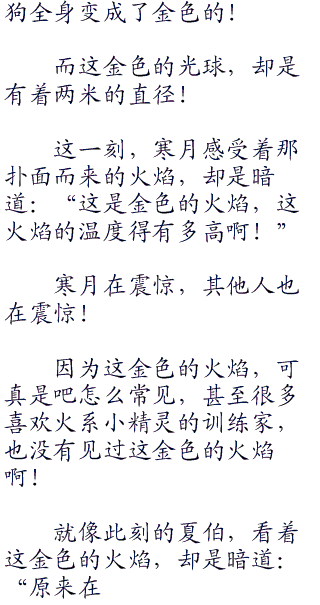 狗全身变成了金色的！
而这金色的光球，却是
有着两米的直径！
这一刻，寒月感受着那
扑面而来的火焰，却是暗
道：“这是金色的火焰，这
火焰的温度得有多高啊！”
寒月在震惊，其他人也
在震惊！
因为这金色的火焰，可
真是吧怎么常见，甚至很多
喜欢火系小精灵的训练家，
也没有见过这金色的火焰
啊！
就像此刻的夏伯，看着
这金色的火焰，却是暗道：
“原来在